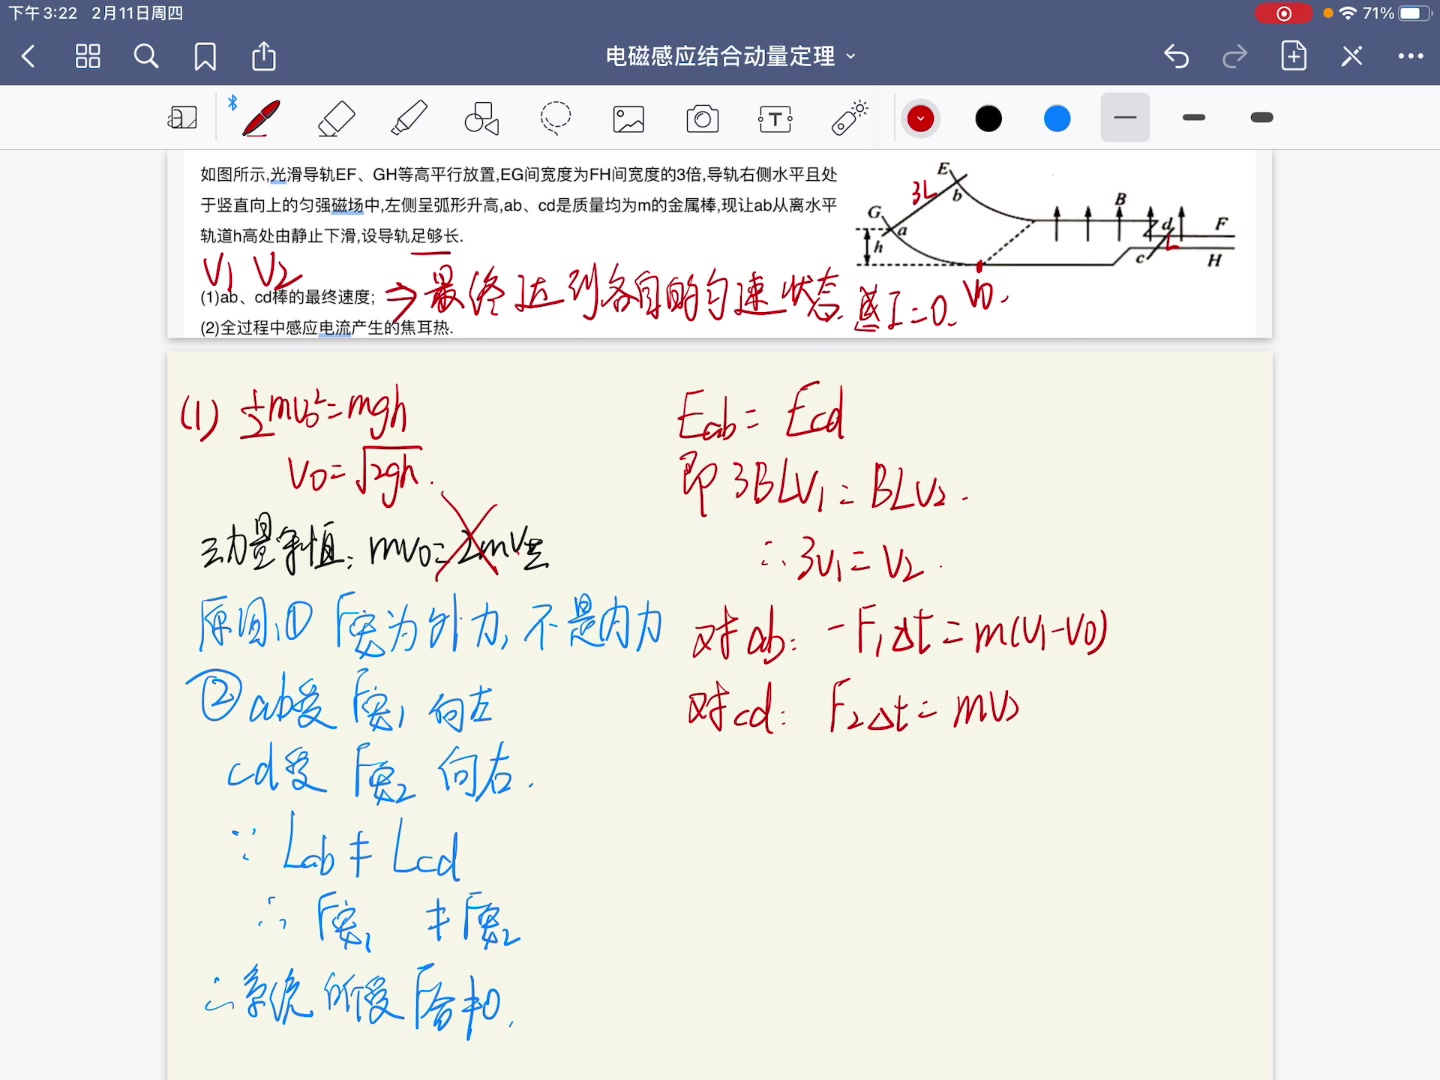 下午3:22 2月11日周四
71%
电磁感应结合动量定理
如图所示,光滑导轨EF、GH等高平行放置,EG间宽度为FH间宽度的3倍,导轨右侧水平且处
于竖直向上的匀强磁场中,左侧呈弧形升高,ab、cd是质量均为m的金属棒,现让ab从离水平
轨道h高处由静止下滑,设导轨足够长.
V₁ V₂
(1)ab、cd棒的最终速度;
⇒最终达到各自的匀速状态.
I=0.
(2)全过程中感应电流产生的焦耳热.
E
3L
b
G
a
h
B
d
F
L
c
H
V₀.
(1) ½mv₀²=mgh
V₀=√2gh.
动量守恒: mv₀=2mv共
原因:① F安为外力,不是内力
②ab受F安₁向左
cd受F安₂向右.
∵ Lab≠Lcd
∴ F安₁ ≠F安₂
∴系统所受F合≠0.
Eab=Ecd
即3BLV₁=BLV₂.
∴3V₁=V₂.
对ab: -F₁Δt=m(V₁-V₀)
对cd: F₂Δt=mV₂